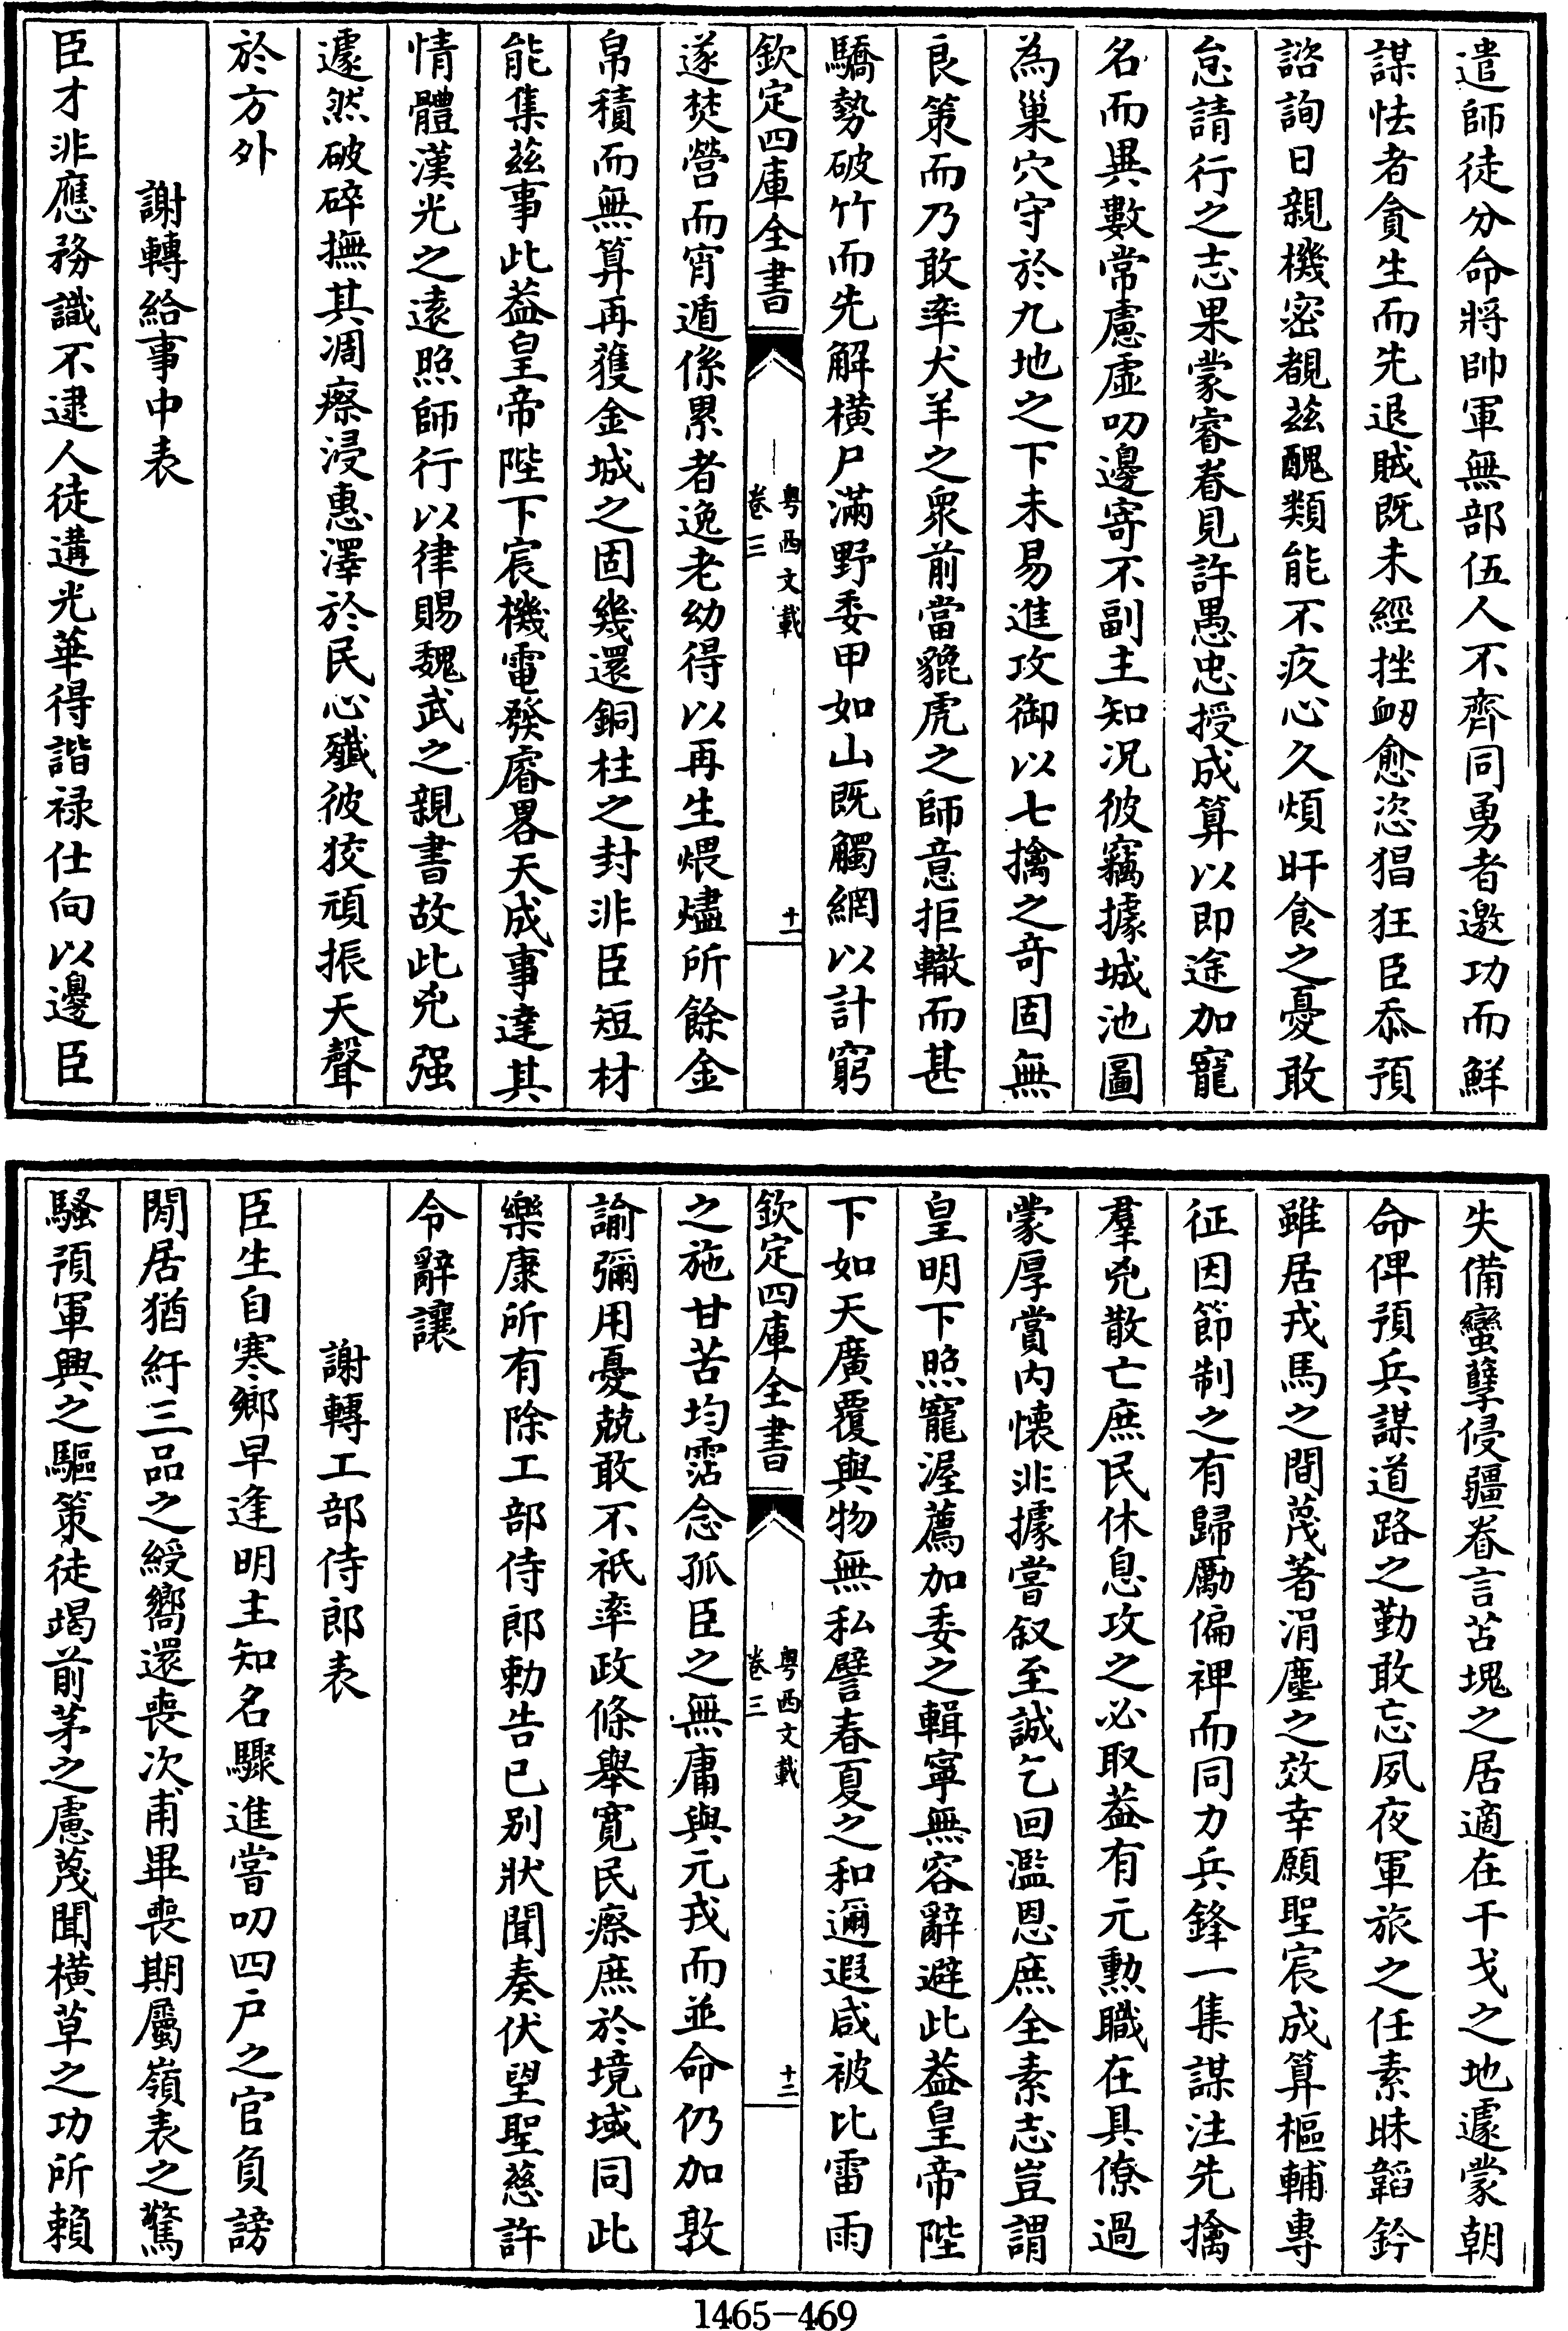 遣師徒分命將帥軍無部伍人不齊同勇者邀功而鮮
謀怯者貪生而先退賊既未經挫衂愈恣猖狂臣忝預
諮詢日親機密覩兹醜類能不疚心久煩旰食之憂敢
怠請行之志果蒙睿眷見許愚忠授成算以即途加寵
名而異數常慮虚叨邊寄不副主知况彼竊據城池圖
為巢穴守於九地之下未易進攻御以七擒之奇固無
良策而乃敢率犬羊之衆前當貔虎之師意拒轍而甚
驕勢破竹而先解横尸滿野委甲如山既觸網以計窮
欽定四庫全書
粤西文載
卷三
十一
遂焚營而宵遁係累者逸老幼得以再生煨燼所餘金
帛積而無算再獲金城之固幾還銅柱之封非臣短材
能集兹事此葢皇帝陛下宸機電發睿畧天成事達其
情體漢光之遠照師行以律賜魏武之親書故此兇强
遽然破碎撫其凋瘵浸惠澤於民心殲彼狡頑振天聲
於方外
謝轉給事中表
臣才非應務識不逮人徒遘光華得諧禄仕向以邊臣
失備蠻孽侵疆眷言苫塊之居適在干戈之地遽蒙朝
命俾預兵謀道路之勤敢忘夙夜軍旅之任素昧韜鈐
雖居戎馬之間蔑著涓塵之效幸願聖宸成算樞輔專
征因節制之有歸勵偏裨而同力兵鋒一集謀注先擒
羣兇散亡庶民休息攻之必取葢有元勲職在具僚過
蒙厚賞内懐非據嘗叙至誠乞回濫恩庶全素志豈謂
皇明下照寵渥薦加委之輯寧無容辭避此葢皇帝陛
下如天廣覆與物無私譬春夏之和邇遐咸被比雷雨
欽定四庫全書
粤西文載
卷三
十二
之施甘苦均霑念孤臣之無庸與元戎而並命仍加敦
諭彌用憂兢敢不祇率政條舉寛民瘵庶於境域同此
樂康所有除工部侍郎勅告已别狀聞奏伏望聖慈許
令辭讓
謝轉工部侍郎表
臣生自寒鄉早逢明主知名驟進嘗叨四户之官負謗
閒居猶紆三品之綬嚮還喪次甫畢喪期屬嶺表之驚
騷預軍興之驅策徒竭前茅之慮蔑聞横草之功所賴
1465-469